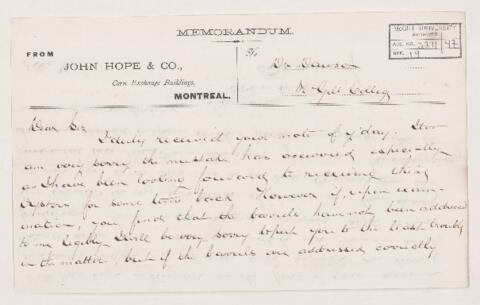 MEMORANDUM.
FROM
JOHN HOPE & CO.,
Corn Exchange Buildings,
MONTREAL.
To
Dr Dawson
McGill College
McGILL UNIVERSITY
ARCHIVES
ACC. NO. 2211 / 47
REF. 19
Dear Sir
I duly received your note of y'day. I too
am very sorry the mistake has occurred especially
as I have been looking forward to receiving these
Oysters for some time back. However if, upon exam-
ination, you find that the barrels have not been addressed
to me legibly I will be very sorry to put you to the least trouble
in the matter, but if the barrels are addressed correctly